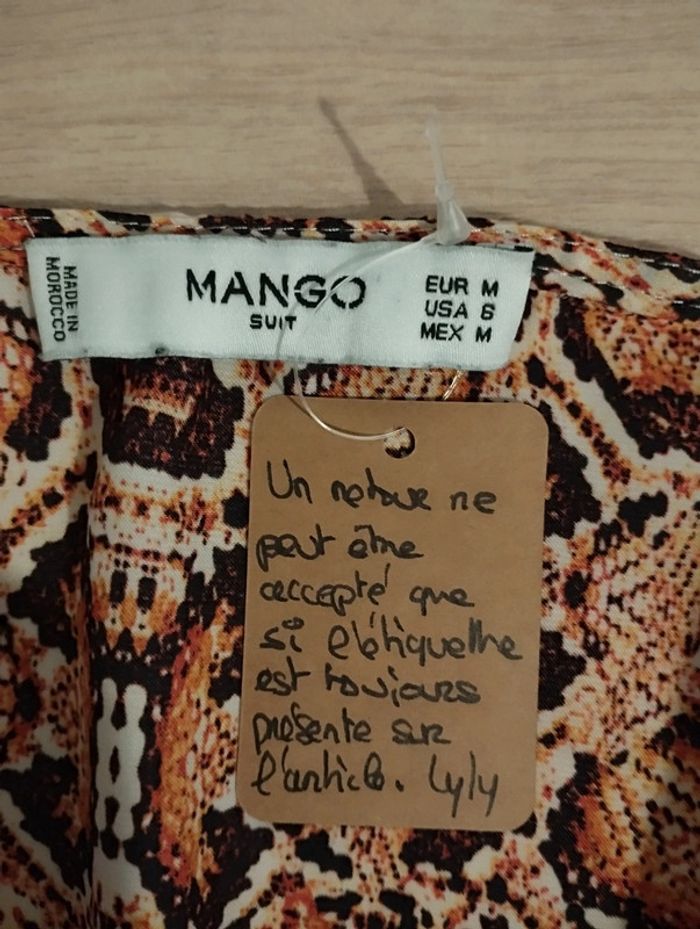 MADE IN
MOROCCO
MANGO
SUIT
EUR M
USA 6
MEX M
Un retour ne
peut être
accepté que
si l'étiquette
est toujours
présente sur
l'article. Lyly